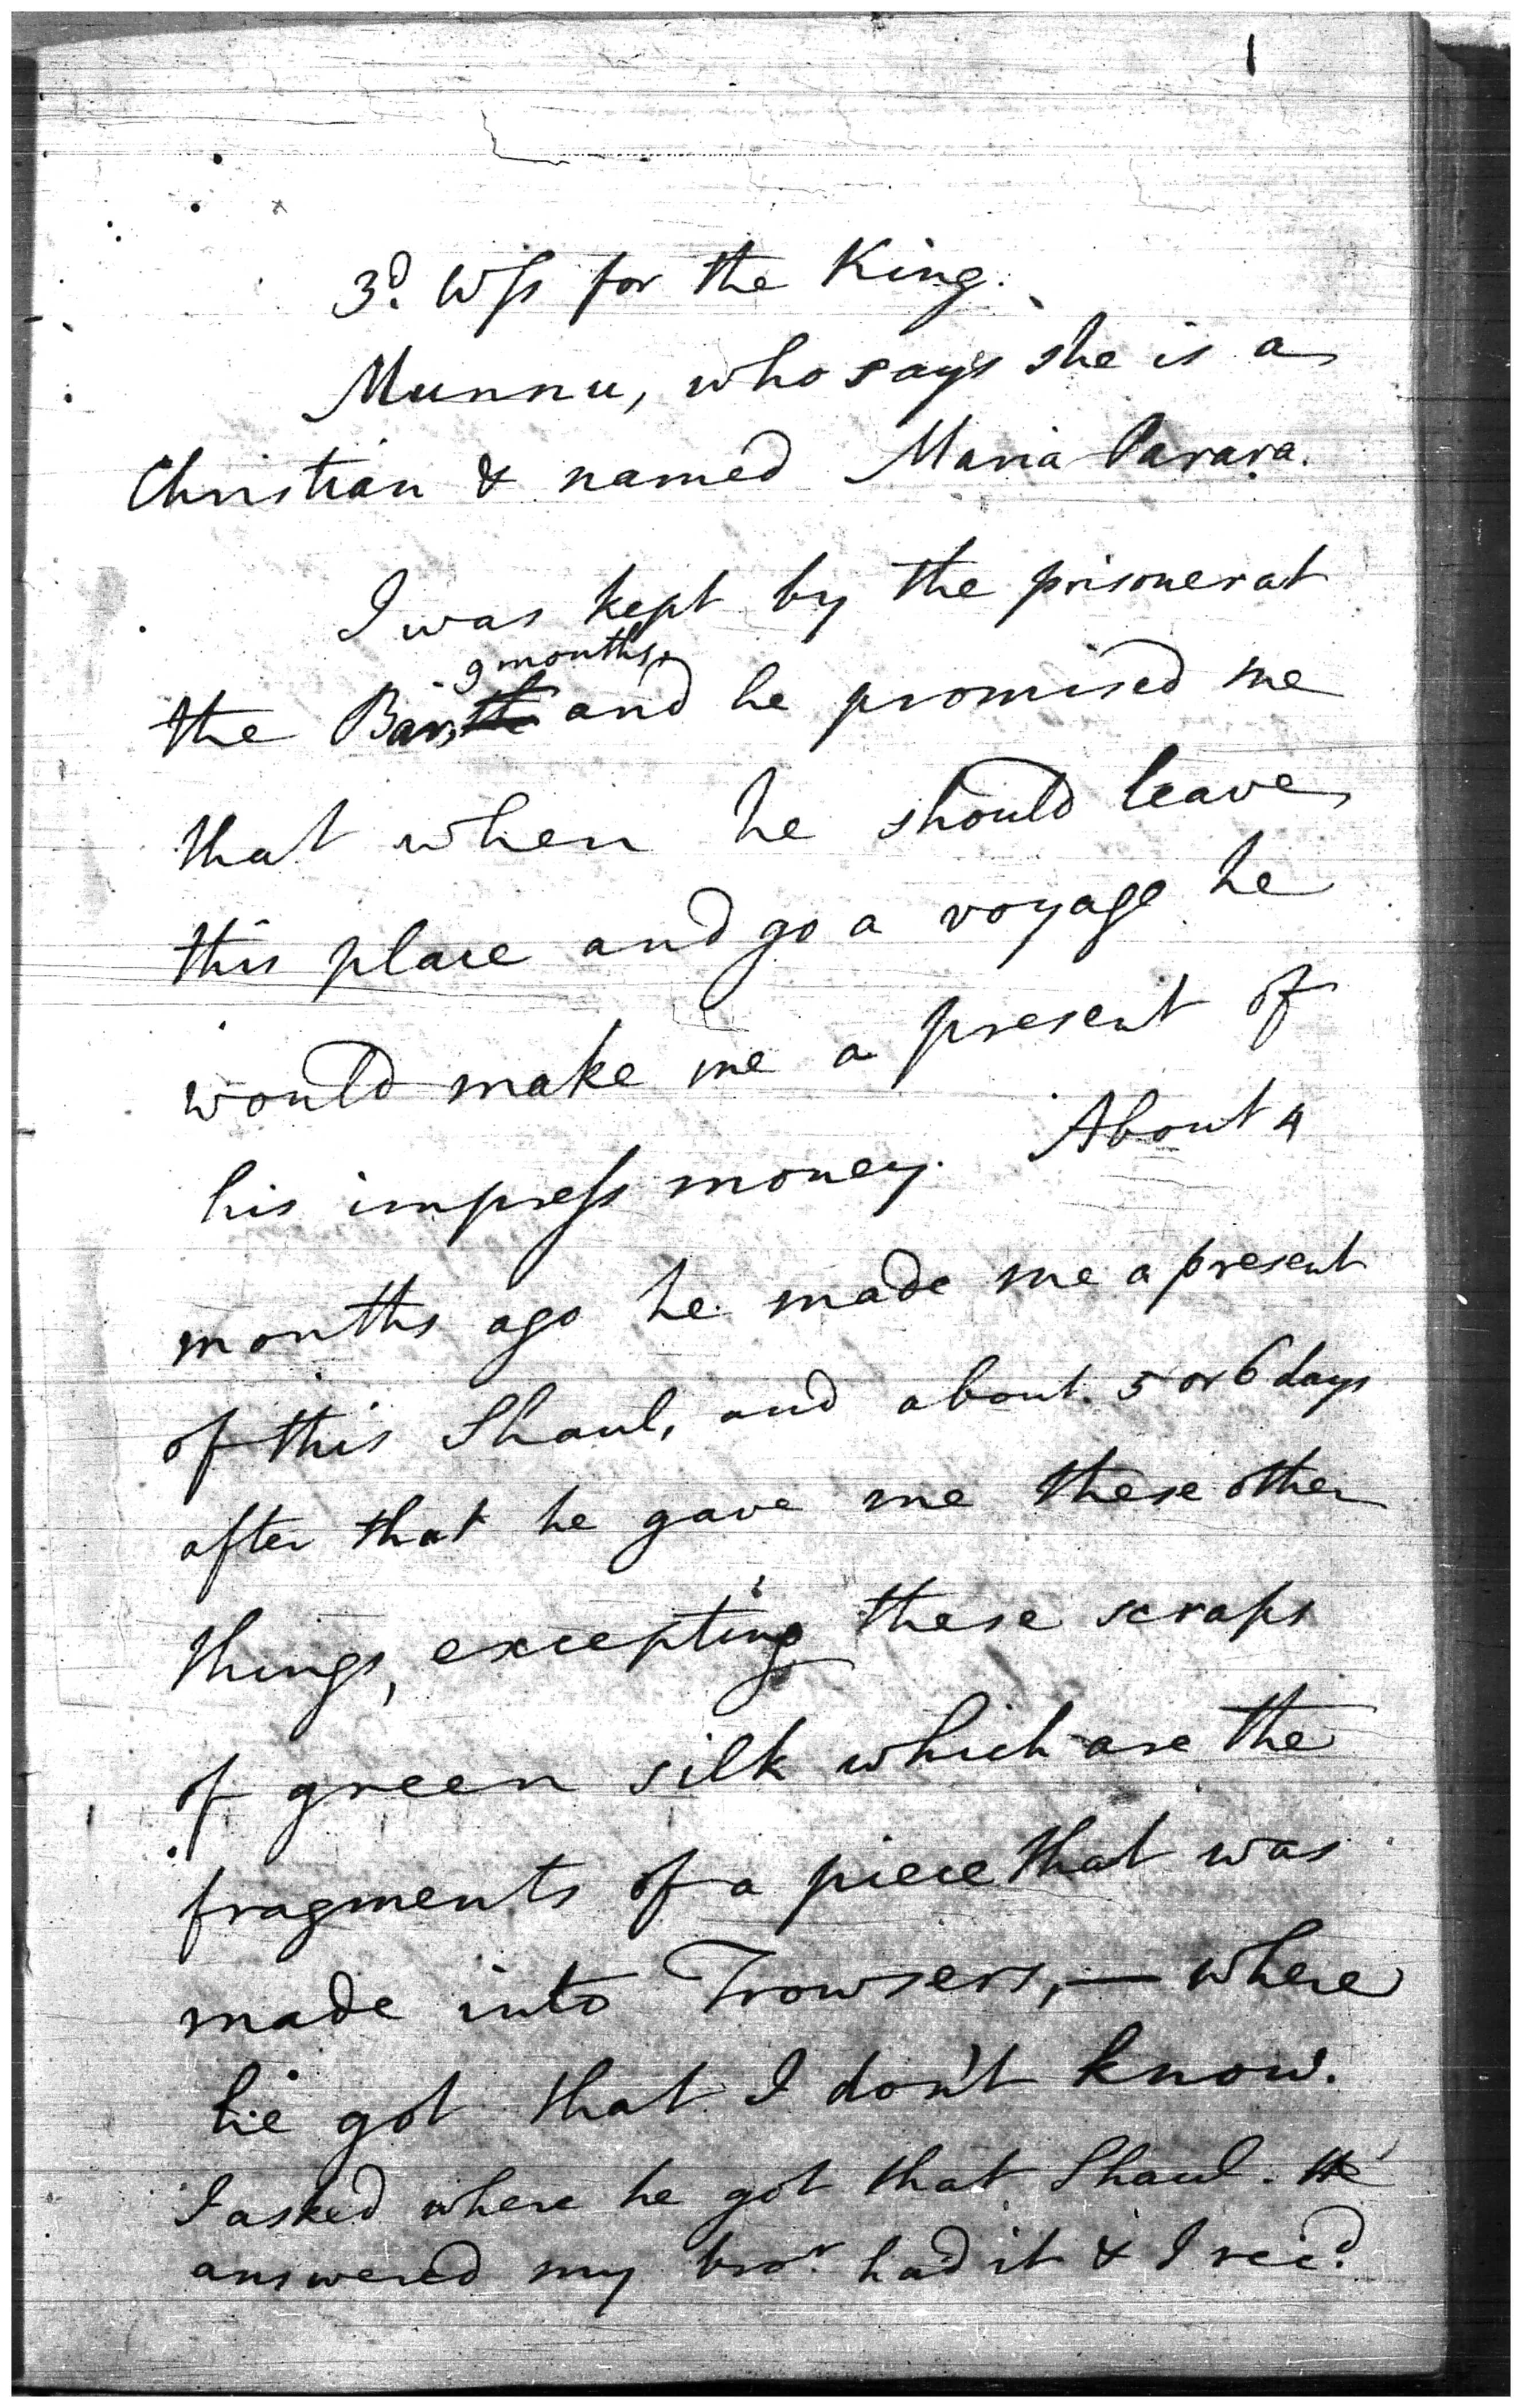 1
3d. Wss for the King.
Munnu, who says she is a
Christian & named Maria Parara.
I was kept by the prisoner at
9 months
the Bar, and he promised me
that when he should leave
this place and go a voyage he
would make me a present of
his impress money. About 4
months ago he made me a present
of this Shaul, and about 5 or 6 days
after that he gave me these other
things, excepting these scraps
of green silk which are the
fragments of a piece that was
made into Trowsers, — where
he got that I don't know.
I asked where he got that Shaul. He
answered my bror. had it & I recd.